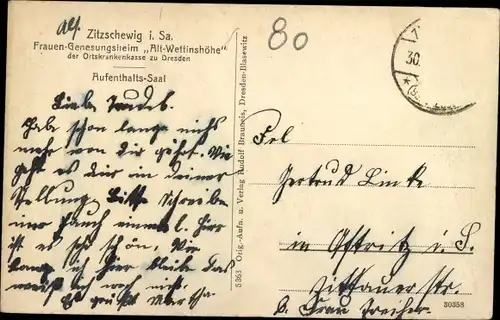 Zitzschewig i. Sa.
Frauen-Genesungsheim „Alt-Wettinshöhe"
der Ortskrankenkasse zu Dresden
Aufenthalts-Saal
80
30.
Liebe Trudel.
Hab schon lange nichts
mehr von dir gehört. Wie
geht es dir in deiner
Stellung. Bitte Schreibe
mir auch einmal. Hier
ist es sehr schön. Wie
lange ich hier bleibe das
weiß ich noch nicht.
Es grüßt Martha.
5263 Orig.-Aufn. u. Verlag Rudolf Brauneis, Dresden-Blasewitz
Frl
Gertrud Linke
in Ostritz i. S.
Zittauer str.
b. Frau
30358